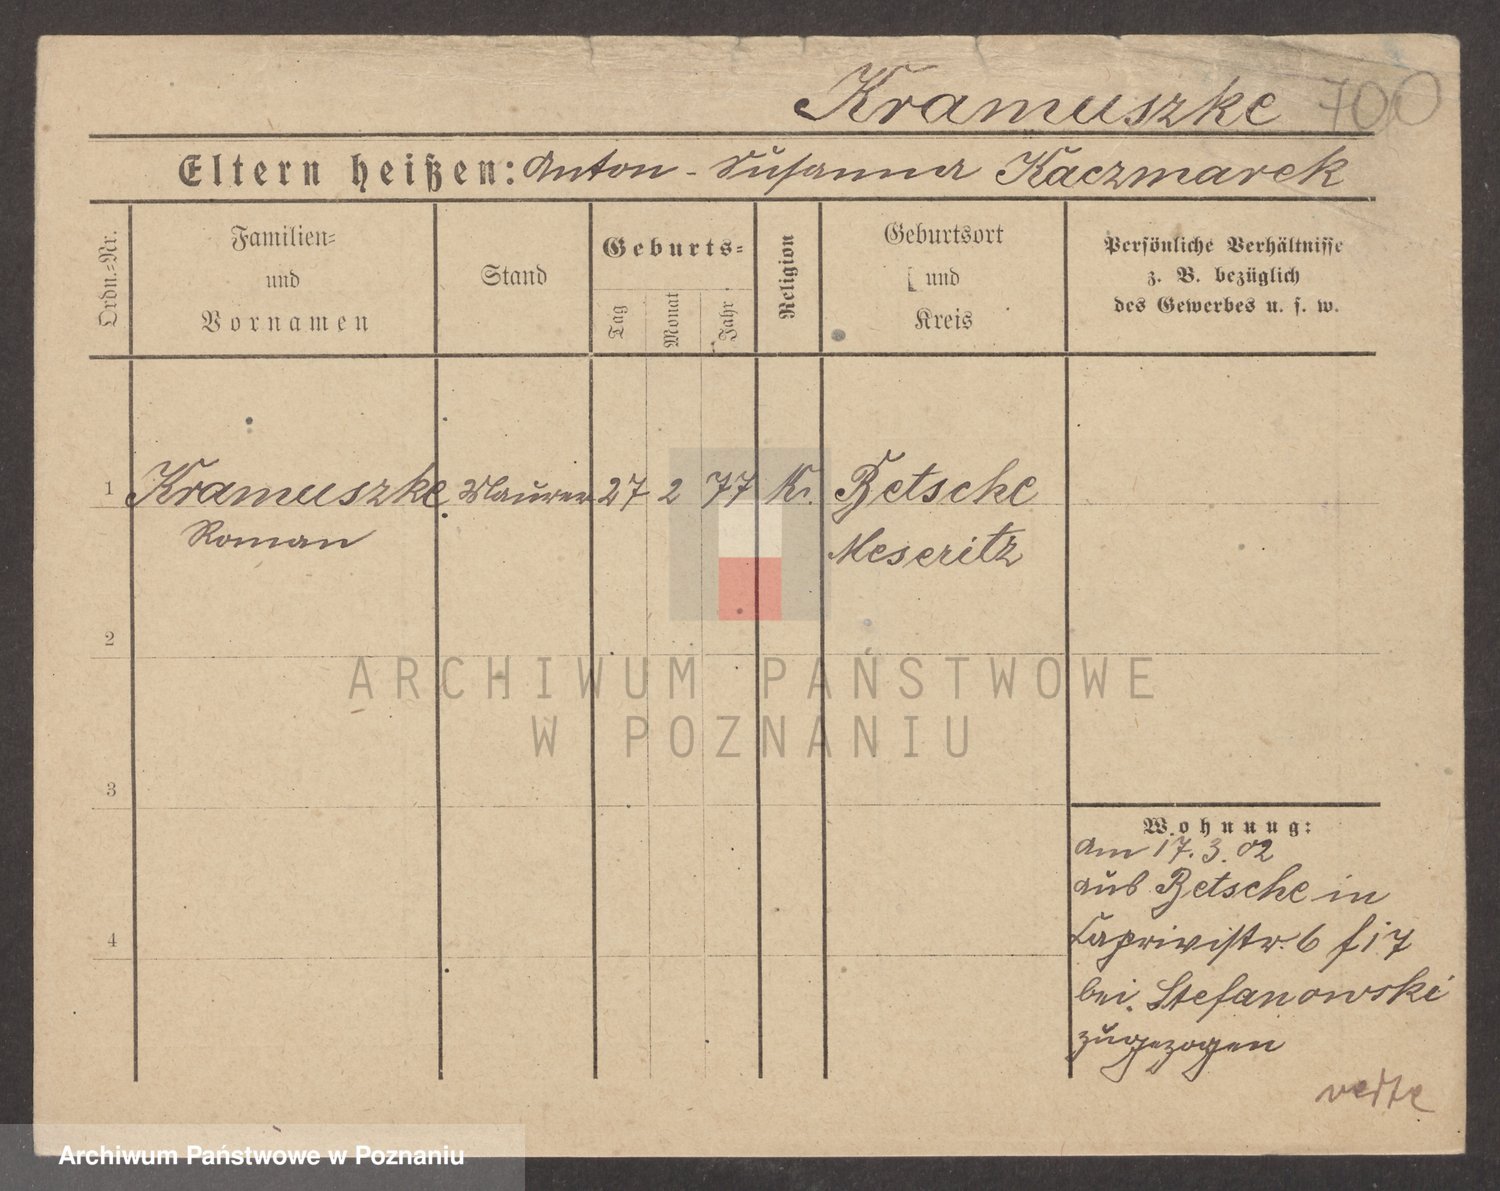 Kramuszke 700
Eltern heißen: Anton - Susanna Kaczmarek
Ordn.-Nr.
Familien-
und
Vornamen
Stand
Geburts-
Tag
Monat
Jahr
Religion
Geburtsort
und
Kreis
Persönliche Verhältnisse
z. B. bezüglich
des Gewerbes u. s. w.
1 Kramuszke Maurer 27 2 77 K. Betsche
Roman Meseritz
2
ARCHIWUM PAŃSTWOWE
W POZNANIU
3
Wohnung:
am 17. 3. 02
aus Betsche in
Caprivistr. 6
4
bei Stefanowski
zugezogen
verte
Archiwum Państwowe w Poznaniu